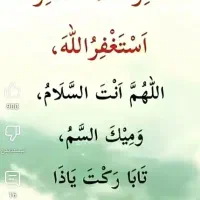 اَسْتَغْفِرُاللهَ،
اللهُمَّ اَنْتَ السَّلَامُ،
وَمِيْكَ السَّمُ،
تَابَا رَكْتَ يَاذَا